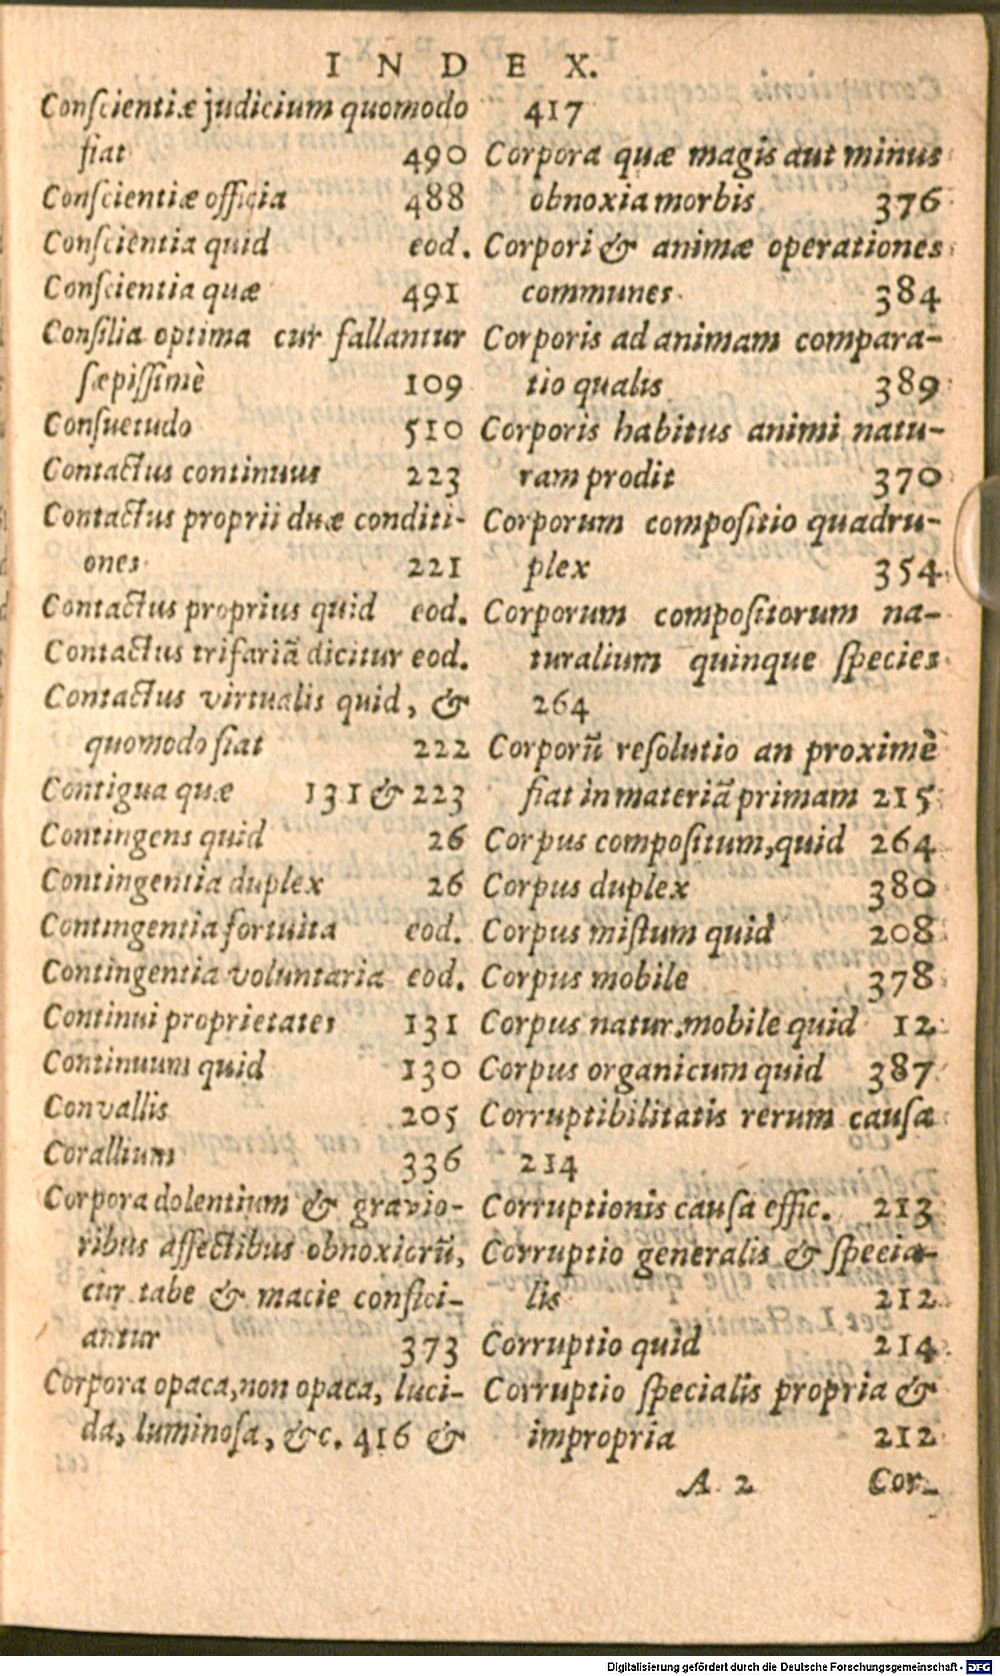 INDEX.
Conſcientiæ judicium quomodo
fiat 490
Conſcientiæ officia 488
Conſcientia quid eod.
Conſcientia quæ 491
Conſilia optima cur fallantur
ſæpiſſimè 109
Conſuetudo 510
Contactus continuus 223
Contactus proprii duæ conditi-
ones 221
Contactus proprius quid eod.
Contactus trifariã dicitur eod.
Contactus virtualis quid, &
quomodo fiat 222
Contigua quæ 131 & 223
Contingens quid 26
Contingentia duplex 26
Contingentia fortuita eod.
Contingentia voluntaria eod.
Continui proprietates 131
Continuum quid 130
Convallis 205
Corallium 336
Corpora dolentium & gravio-
ribus affectibus obnoxiorũ,
cur tabe & macie confici-
antur 373
Corpora opaca, non opaca, luci-
da, luminoſa, &c. 416 &
417
Corpora quæ magis aut minus
obnoxia morbis 376
Corpori & animæ operationes
communes 384
Corporis ad animam compara-
tio qualis 389
Corporis habitus animi natu-
ram prodit 370
Corporum compoſitio quadru-
plex 354
Corporum compoſitorum na-
turalium quinque ſpecies
264
Corporũ reſolutio an proximè
fiat in materiã primam 215
Corpus compoſitum, quid 264
Corpus duplex 380
Corpus miſtum quid 208
Corpus mobile 378
Corpus natur. mobile quid 12
Corpus organicum quid 387
Corruptibilitatis rerum cauſa
214
Corruptionis cauſa effic. 213
Corruptio generalis & ſpecia-
lis 212
Corruptio quid 214
Corruptio ſpecialis propria &
impropria 212
A 2 Cor-
Digitalisierung gefördert durch die Deutsche Forschungsgemeinschaft - DFG